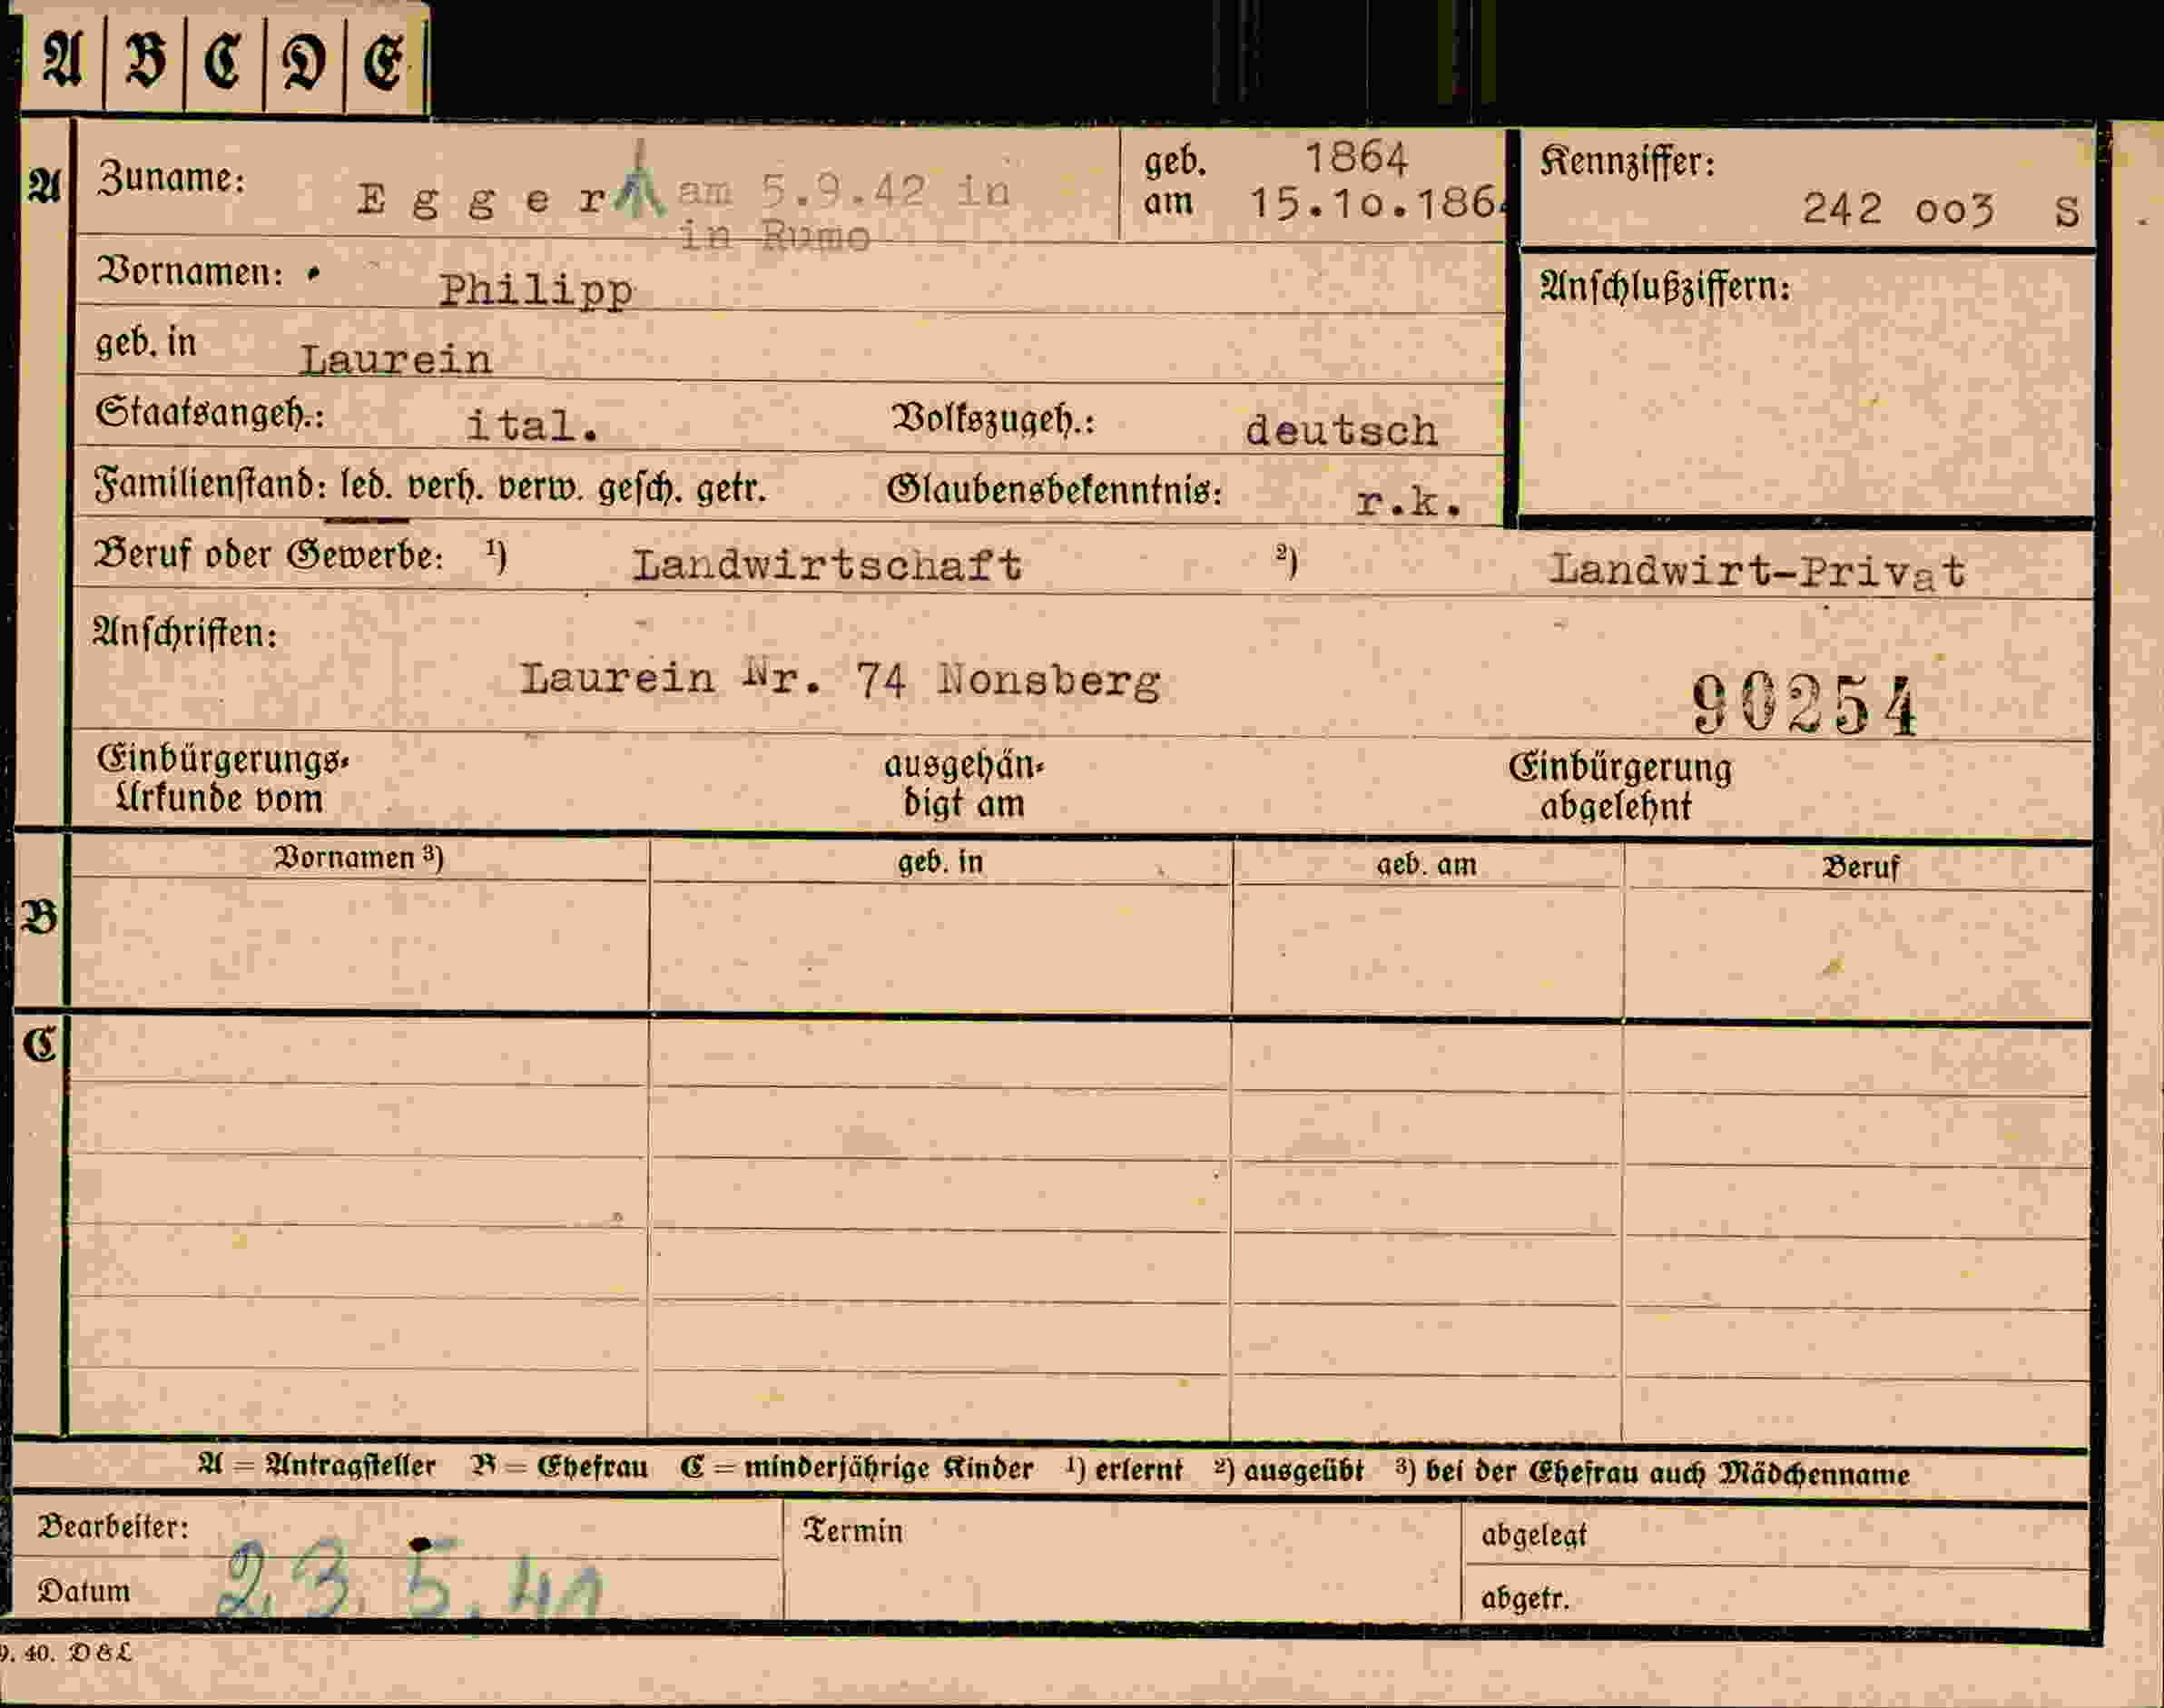 A B C D E
A Zuname: Egger am 5.9.42 in geb. 1864 Kennziffer:
in Rumo am 15.10.186 242 oo3 S
Vornamen: Philipp Anschlußziffern:
geb. in Laurein
Staatsangeh.: ital. Volkszugeh.: deutsch
Familienstand: led. verh. verw. gesch. getr. Glaubensbekenntnis: r.k.
Beruf oder Gewerbe: 1) Landwirtschaft 2) Landwirt-Privat
Anschriften:
Laurein Nr. 74 Nonsberg 90254
Einbürgerungs- ausgehän- Einbürgerung
Urkunde vom digt am abgelehnt
Vornamen 3) geb. in geb. am Beruf
B
C
A = Antragsteller B = Ehefrau C = minderjährige Kinder 1) erlernt 2) ausgeübt 3) bei der Ehefrau auch Mädchenname
Bearbeiter: Termin abgelegt
Datum 23.5.41 abgetr.
9. 40. D & L